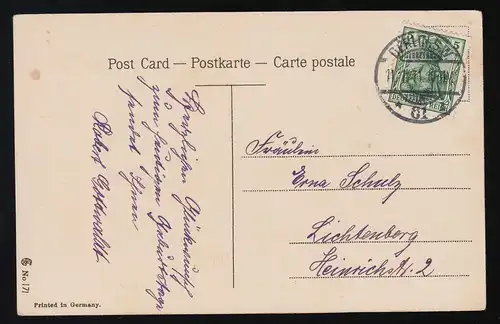 Post Card — Postkarte — Carte postale
Herzlichen Glückwunsch
zum heutigen Geburtstage
sendet Ihnen
Robert
Fräulein
Erna Schulz
Lichtenberg
Heinrichstr. 2
81
No 171
Printed in Germany.